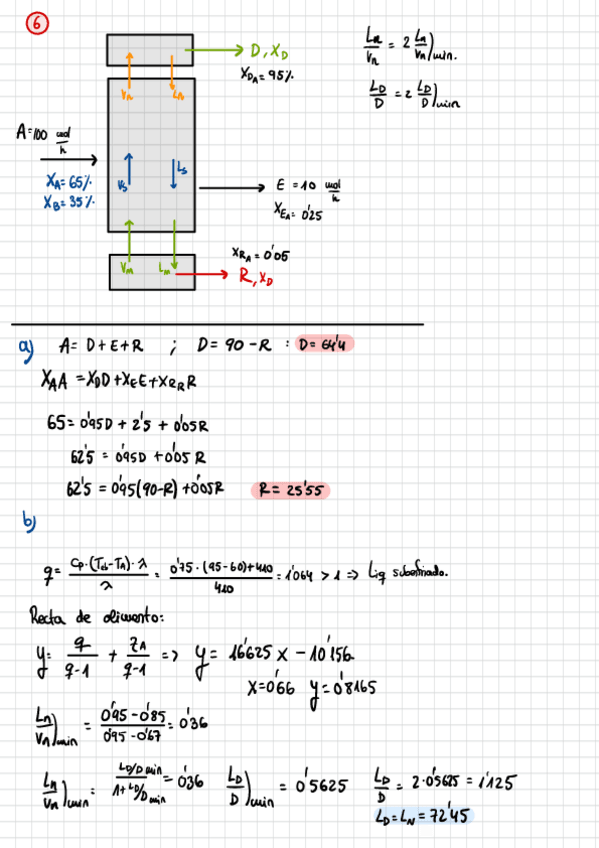 6
D, X_D
X_DA = 95%
L_n/V_n = 2 L_n/V_n)min.
L_D/D = 2 L_D/D)min
V_n L_n
A=100 mol/h
X_A = 65%
X_B = 35%
V_s L_s
E = 10 mol/h
X_EA = 0'25
X_RA = 0'05
V_m L_m
R, X_D
a) A = D + E + R ; D = 90 - R : D = 64'4
X_A A = X_D D + X_E E + X_RR R
65 = 0'95D + 2'5 + 0'05R
62'5 = 0'95D + 0'05 R
62'5 = 0'95(90-R) + 0'05R R = 25'55
b)
q = Cp·(Teb-TA)·λ/λ = 0'75·(95-60)+410/410 = 1'064 > 1 => Liq subenfriado.
Recta de alimento:
y = q/q-1 + z_A/q-1 => y = 16'625 x - 10'156
x=0'66 y=0'8165
L_n/V_n)min = 0'95-0'85/0'95-0'67 = 0'36
L_n/V_n)min = L_D/D min/1+L_D/D min = 0'36 L_D/D)min = 0'5625 L_D/D = 2·0'5625 = 1'125
L_D = L_N = 72'45